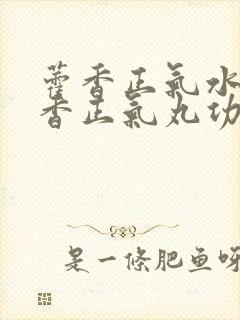 藿香正氣水
香正氣丸功
是一條肥鱼呀